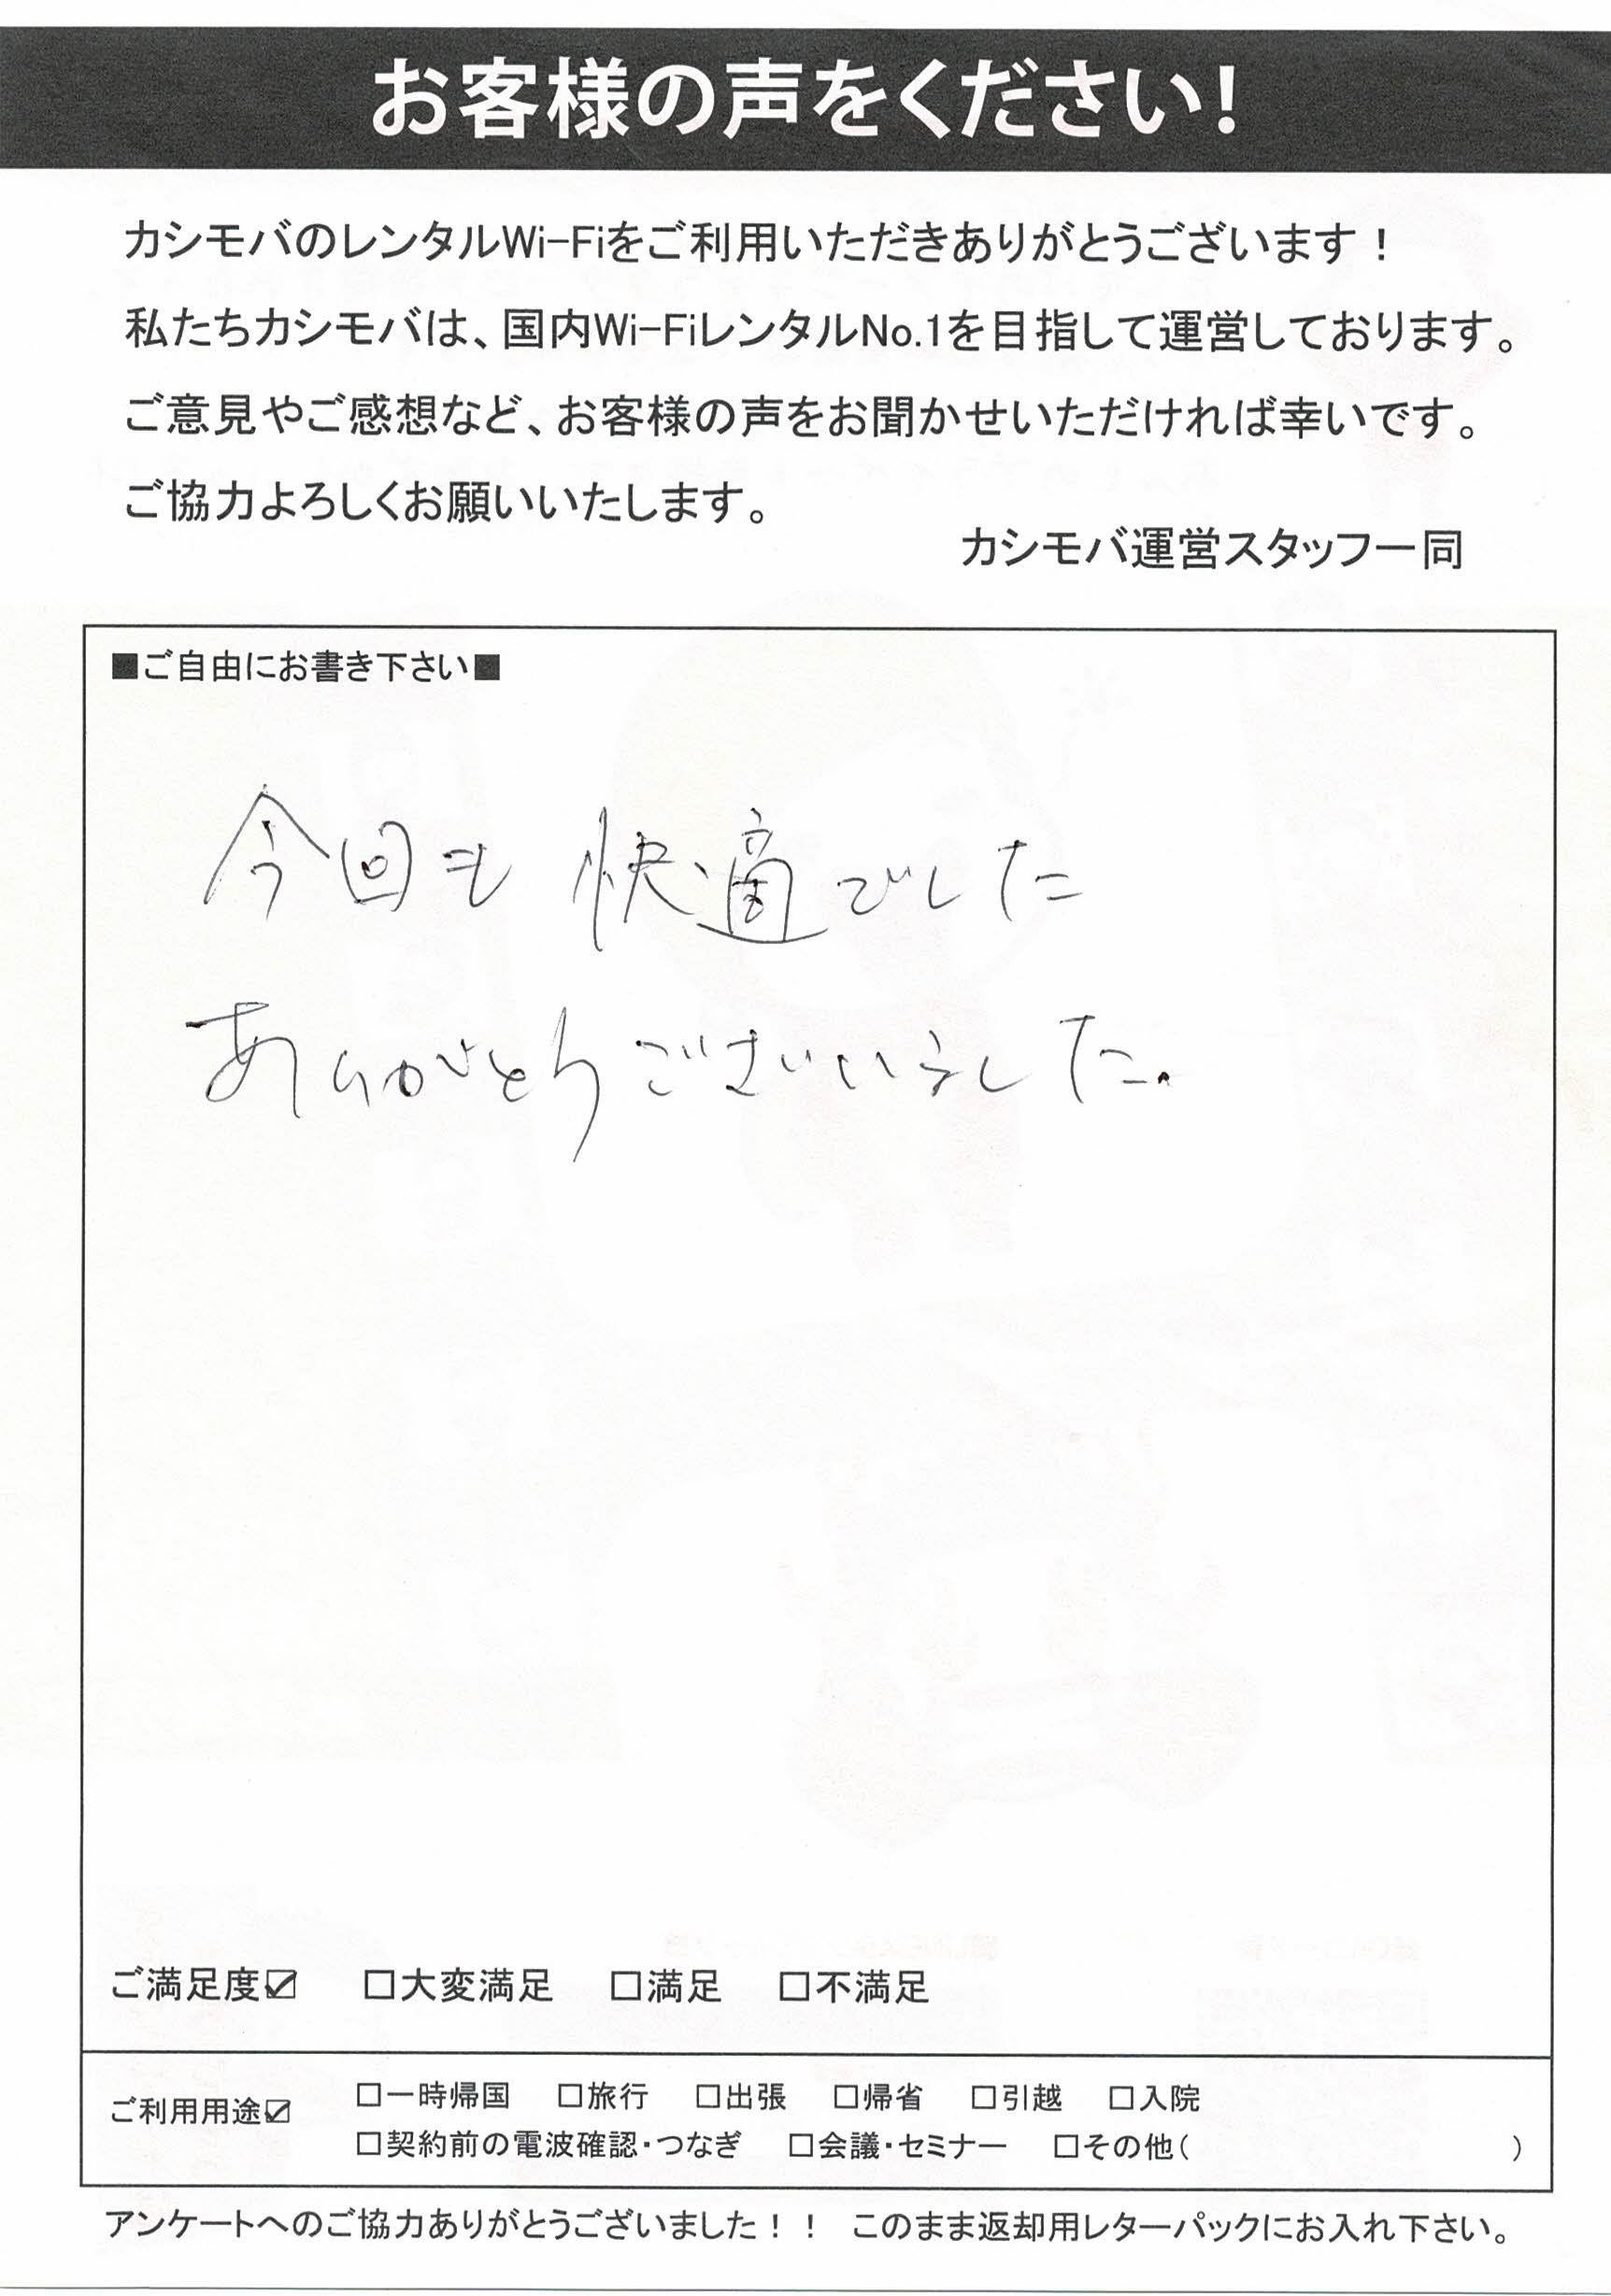 お客様の声をください!
カシモバのレンタルWi-Fiをご利用いただきありがとうございます！
私たちカシモバは、国内Wi-FiレンタルNo.1を目指して運営しております。
ご意見やご感想など、お客様の声をお聞かせいただければ幸いです。
ご協力よろしくお願いいたします。
カシモバ運営スタッフ一同
■ご自由にお書き下さい■
今回も快適でした
ありがとうございました.
ご満足度☑ □大変満足 □満足 □不満足
ご利用用途☑ □一時帰国 □旅行 □出張 □帰省 □引越 □入院
□契約前の電波確認・つなぎ □会議・セミナー □その他( )
アンケートへのご協力ありがとうございました！！ このまま返却用レターパックにお入れ下さい。